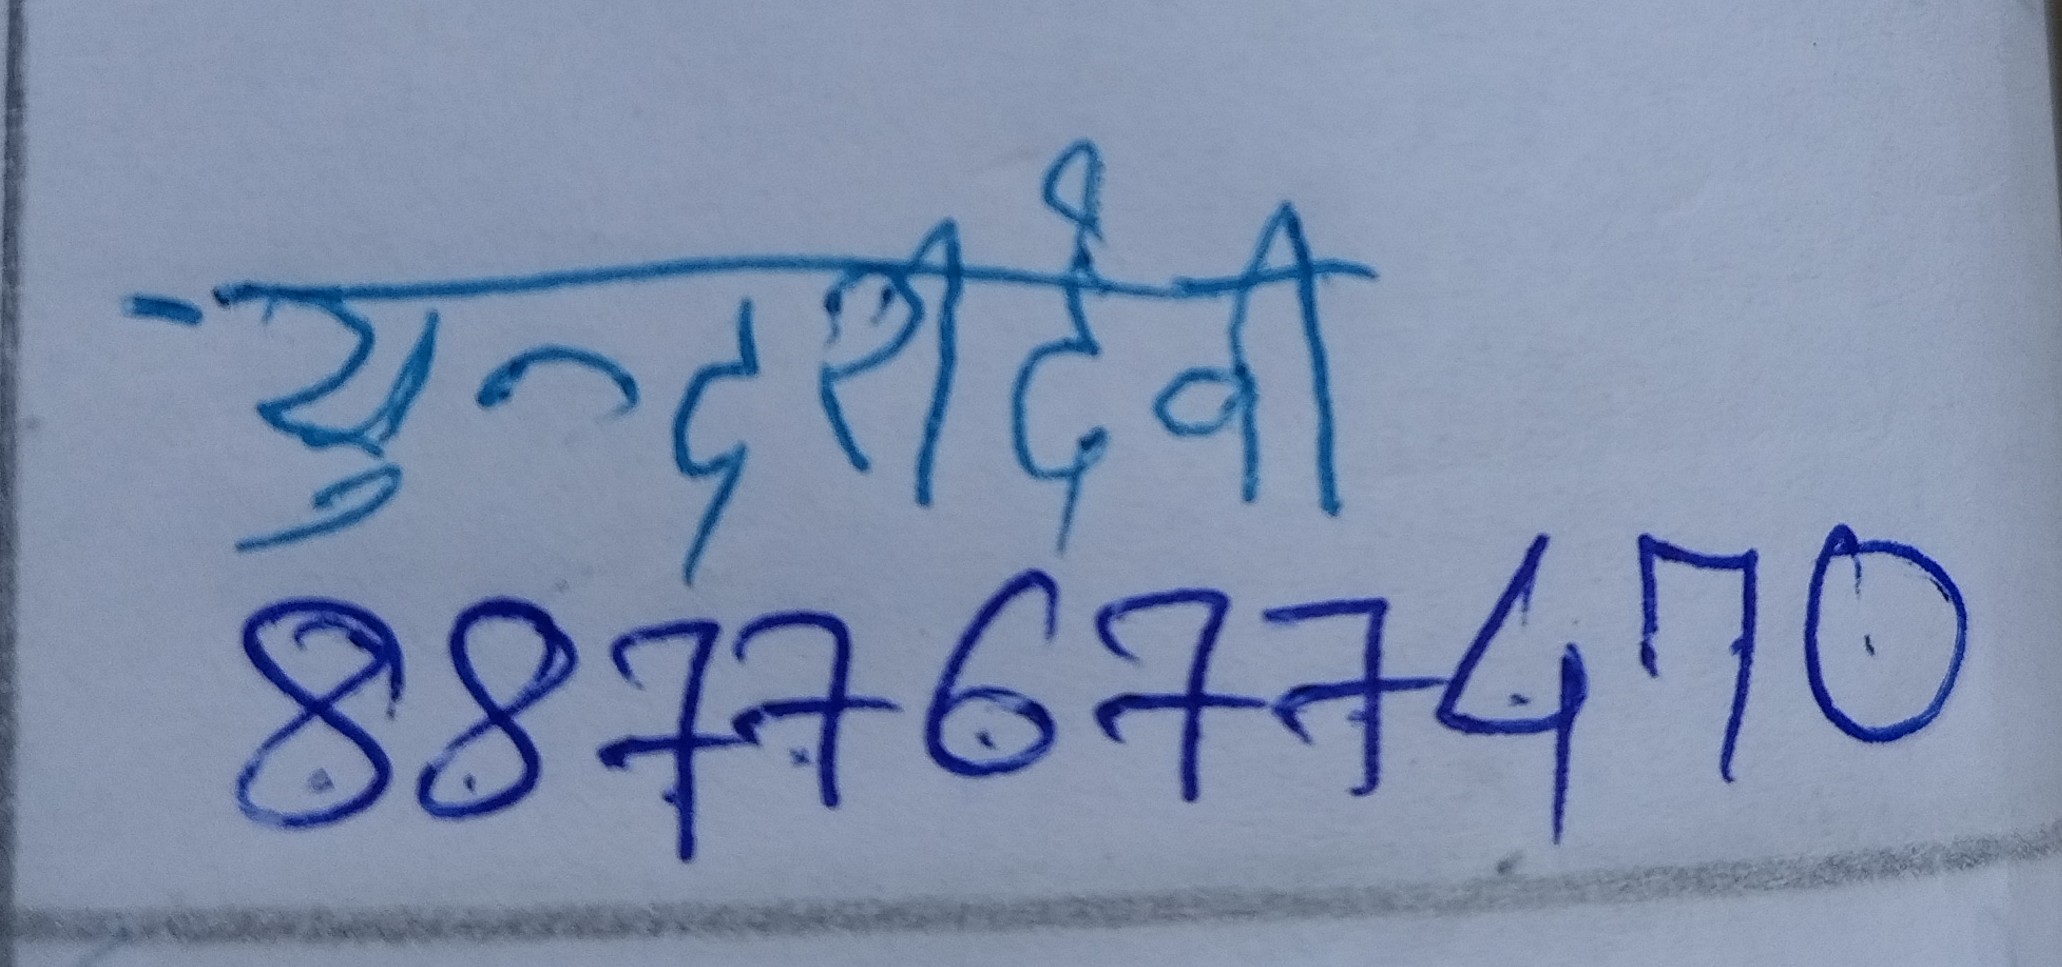 सुन्दरी देवी
8877677470